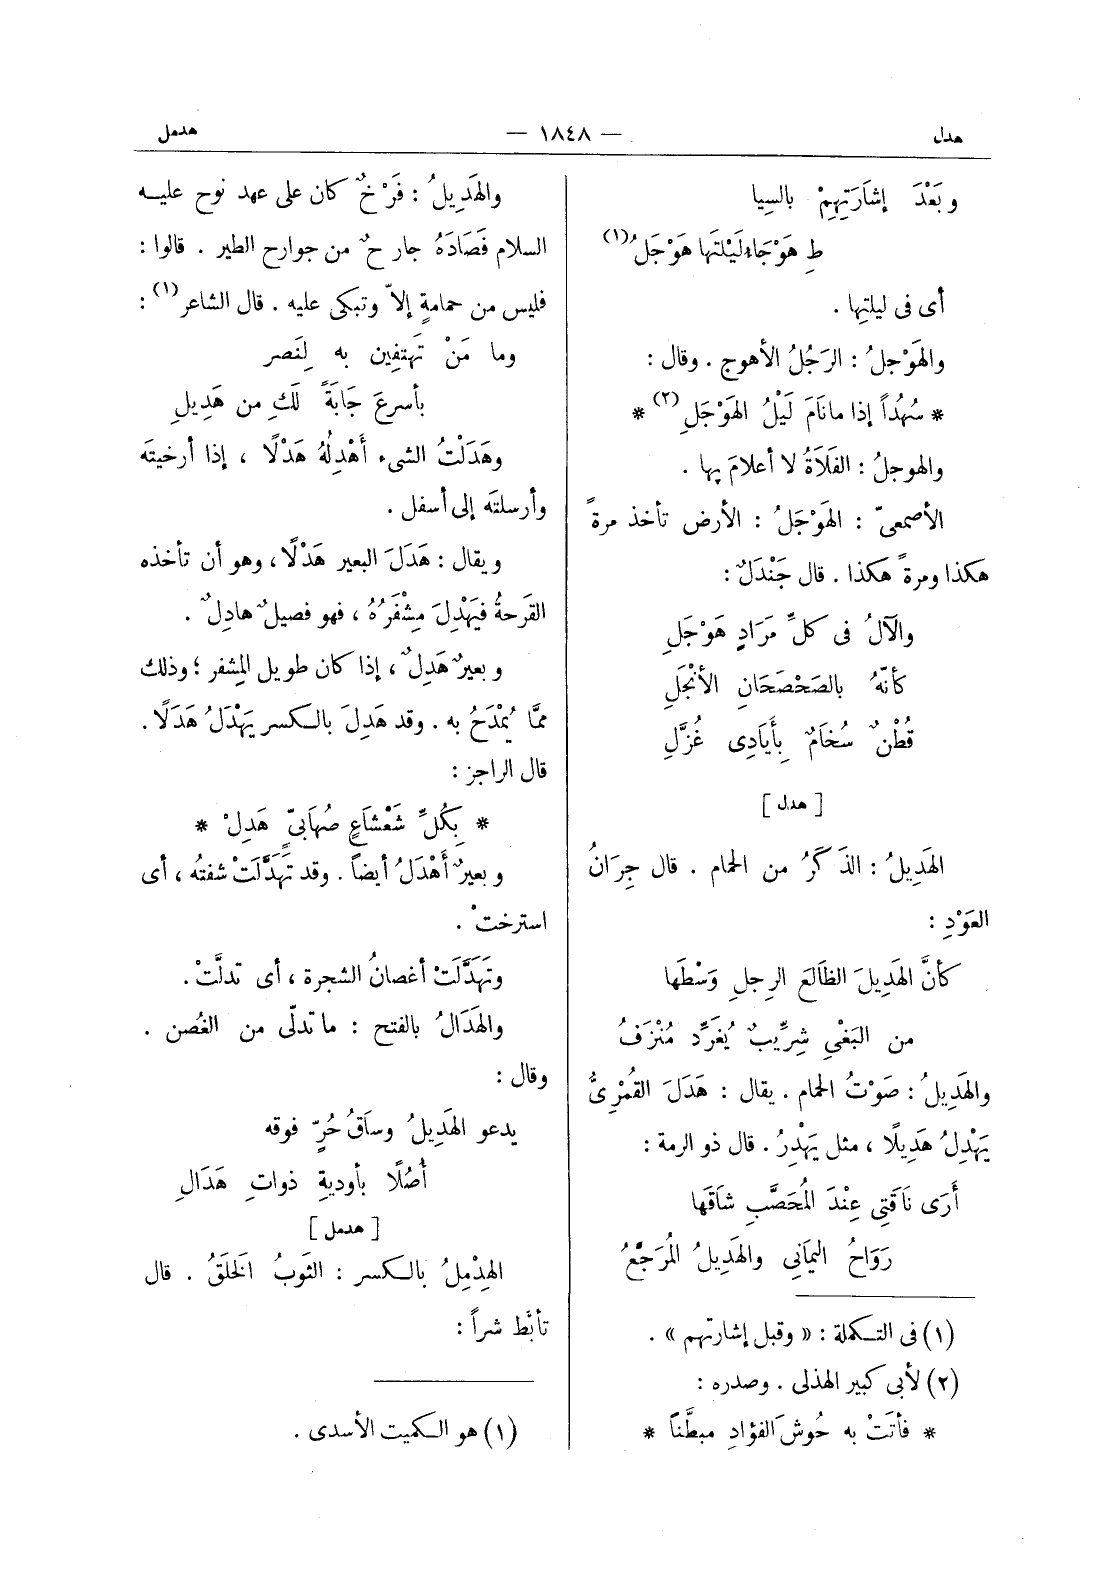 هدل
— ١٨٤٨ —
هدمل
وبَعْدَ إشَارَتِهِمْ بالسِيا
طِ هَوْجَاءَ لَيْلَتَها هَوْجَلُ (١)
أى فى ليلتِها .
والهَوْجلُ : الرَجُلُ الأهوج . وقال :
* سُهُداً إذا ما نَامَ لَيْلُ الهَوْجَلِ (٢) *
والهوجلُ : الفَلَاةُ لا أعلامَ بِها .
الأصمعىّ : الهَوْجَلُ : الأرض تأخذ مرةً
هكذا ومرةً هكذا . قال جَنْدَلٌ :
والآلُ فى كلِّ مَرَادٍ هَوْجَلِ
كأنّهُ بالصَحْصَحَانِ الأنْجَلِ
قُطْنٌ سُخَامٌ بِأَيَادِى غُزَّلِ
[ هدل ]
الهَدِيلُ : الذَكَرُ من الحمام . قال جِرَانُ
العَوْدِ :
كأنَّ الهَدِيلَ الظَالَعَ الرِجلِ وَسْطَها
من البَغْىِ شِرِّيبٌ يُغَرِّد مُنْزَفُ
والهَدِيلُ : صَوْتُ الحمام . يقال : هَدَلَ القُمْرِىُّ
يَهْدِلُ هَدِيلًا ، مثل يَهْدِرُ . قال ذو الرمة :
أَرَى نَاقَتِى عِنْدَ المُحَصَّبِ شاَقَها
رَوَاحُ اليمَانِى والهَدِيلُ المُرَجَّعُ
(١) فى التـكملة : « وقبل إشارتهم » .
(٢) لأبى كبير الهذلى . وصدره :
* فأتَتْ به حُوشَ الفؤادِ مبطَّناً *
والهَدِيلُ : فَرْخٌ كان على عهد نوح عليـه
السلام فَصَادَهُ جارحٌ من جوارح الطير . قالوا :
فليس من حمامةٍ إلاّ وتبكى عليه . قال الشاعر (١) :
وما مَنْ تَهتِفِين به لِنَصر
بأسرعَ جَابَةً لَكِ من هَدِيلِ
وهَدَلْتُ الشىء أَهْدِلُهُ هَدْلًا ، إذا أرخيتَه
وأرسلتَه إلى أسفل .
ويقال : هَدَلَ البعير هَدْلًا ، وهو أن تأخذه
القَرحةُ فيَهْدِلَ مِشْفَرُهُ ، فهو فصيلٌ هادِلٌ .
وبعيرٌ هَدِلٌ ، إذا كان طويل المِشفر ؛ وذلك
ممَّا يُمْدَحُ به . وقد هَدِلَ بالـكسر يَهْدَلُ هَدَلًا .
قال الراجز :
* بِكُلِّ شَعْشَاعٍ صُهَابىٍّ هَدِلْ *
وبعيرٌ أَهْدَلُ أيضاً . وقد تَهَدَّلَتْ شفتُه ، أى
استرختْ .
وتَهَدَّلَتْ أغصانُ الشجرة ، أى تدلَّتْ .
والهَدَالُ بالفتح : ما تدلّى من الغُصن .
وقال :
يدعو الهَدِيلُ وساَقُ حُرٍّ فوقه
أُصُلًا بأوديةِ ذواتِ هَدَالِ
[ هدمل ]
الهِدْمِلُ بالـكسر : الثَوبُ الخَلَقُ . قال
تأبّط شراً :
(١) هو الـكميت الأسدى .